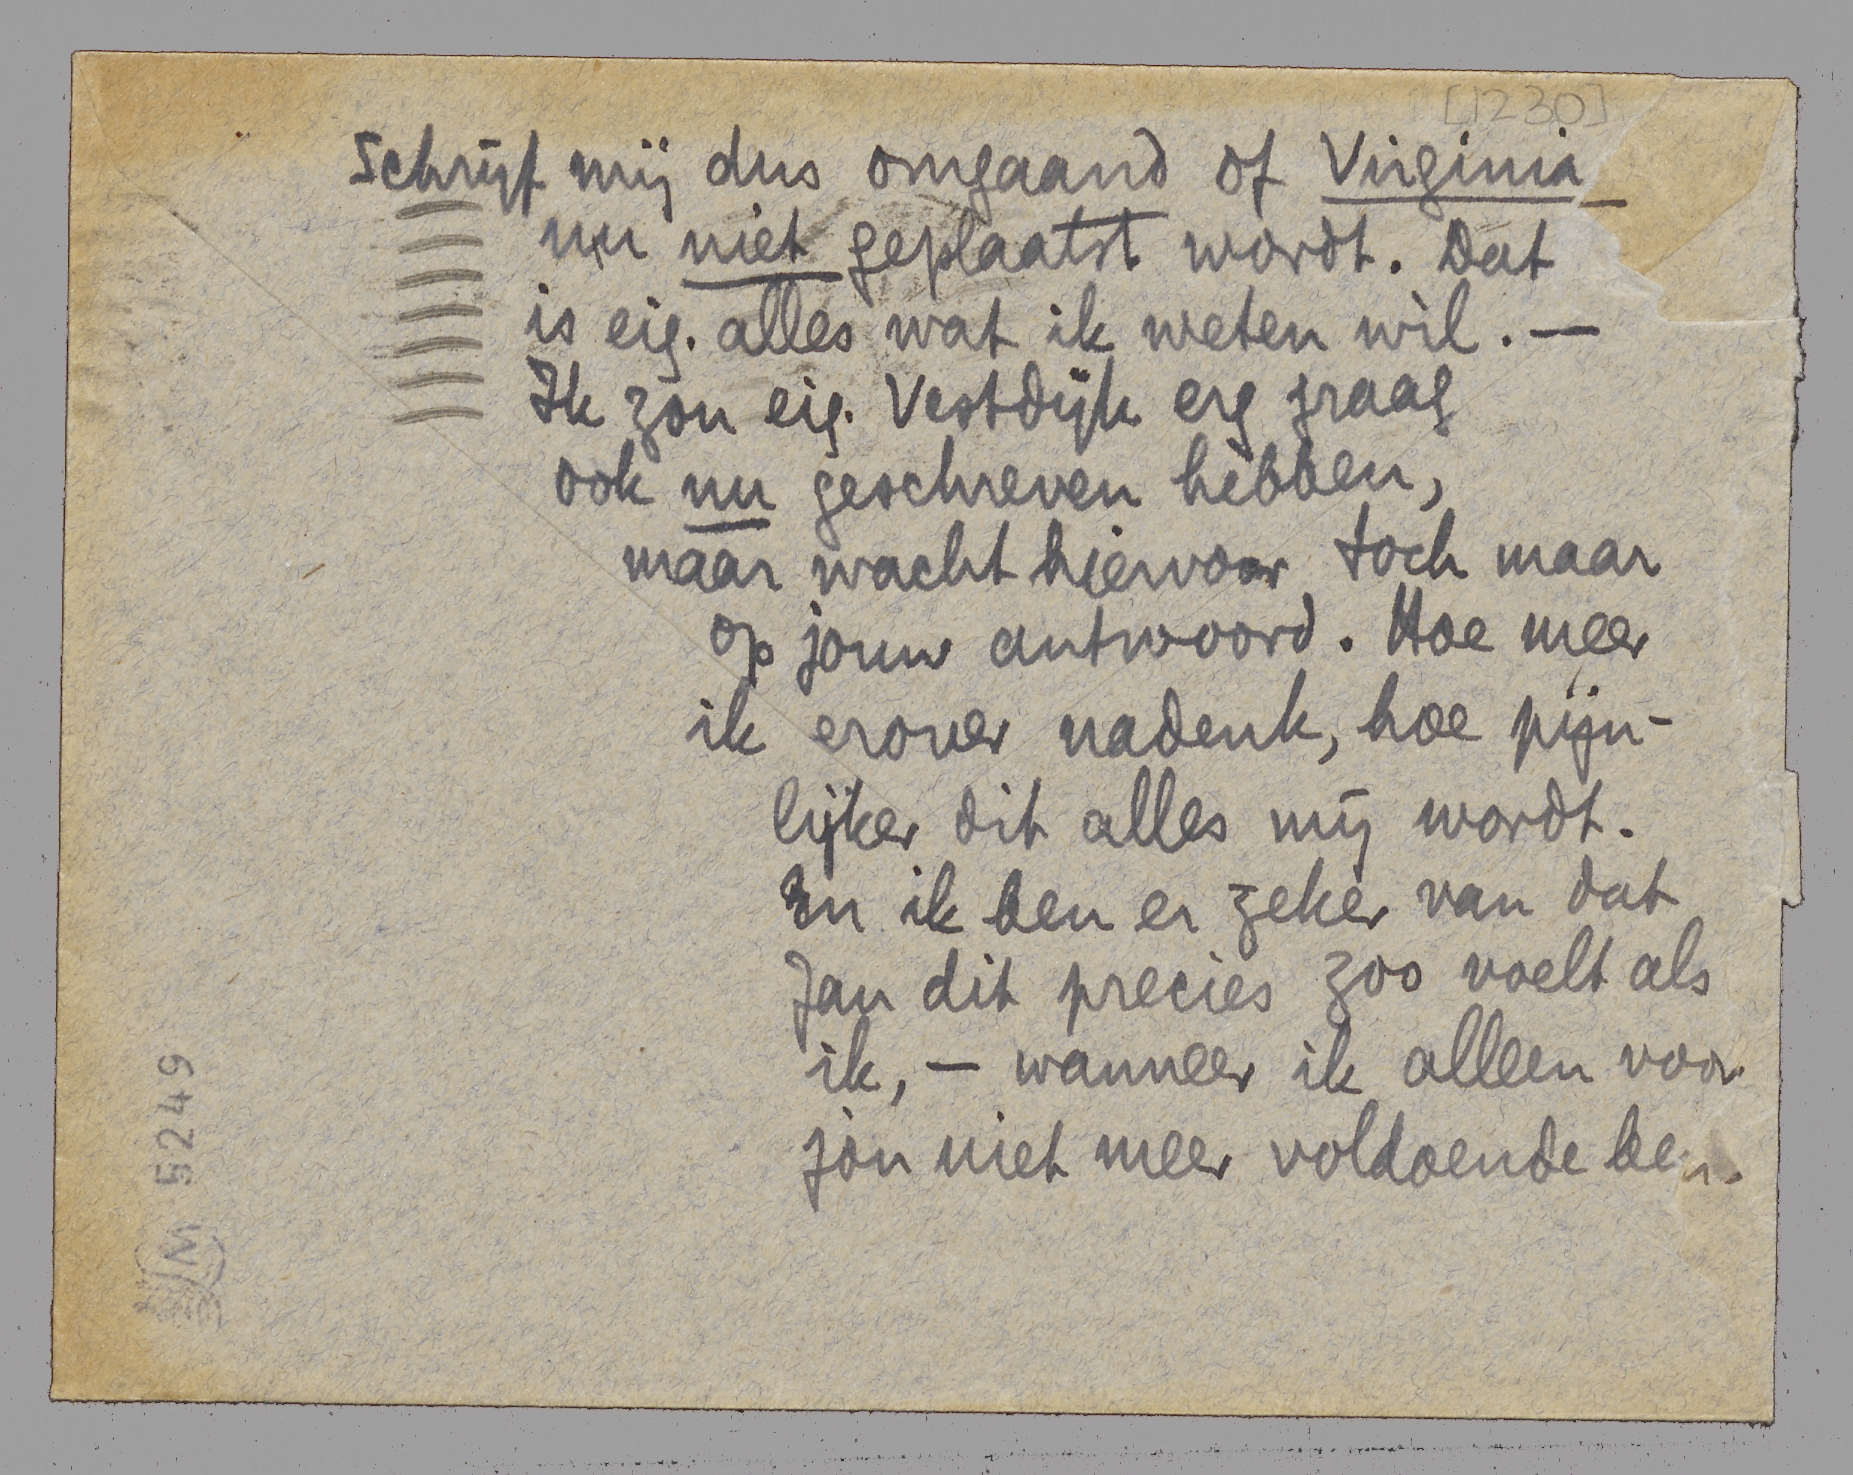 [1230]
Schrijf mij dus omgaand of Virginia
nu niet geplaatst wordt. Dat
is eig. alles wat ik weten wil. —
Ik zou eig. Vestdijk erg graag
ook nu geschreven hebben,
maar wacht hiervoor toch maar
op jouw antwoord. Hoe meer
ik erover nadenk, hoe pijn-
lijker dit alles mij wordt.
En ik ben er zeker van dat
Jan dit precies zoo voelt als
ik, — wanneer ik alleen voor
jou niet meer voldoende ben.
M 5249